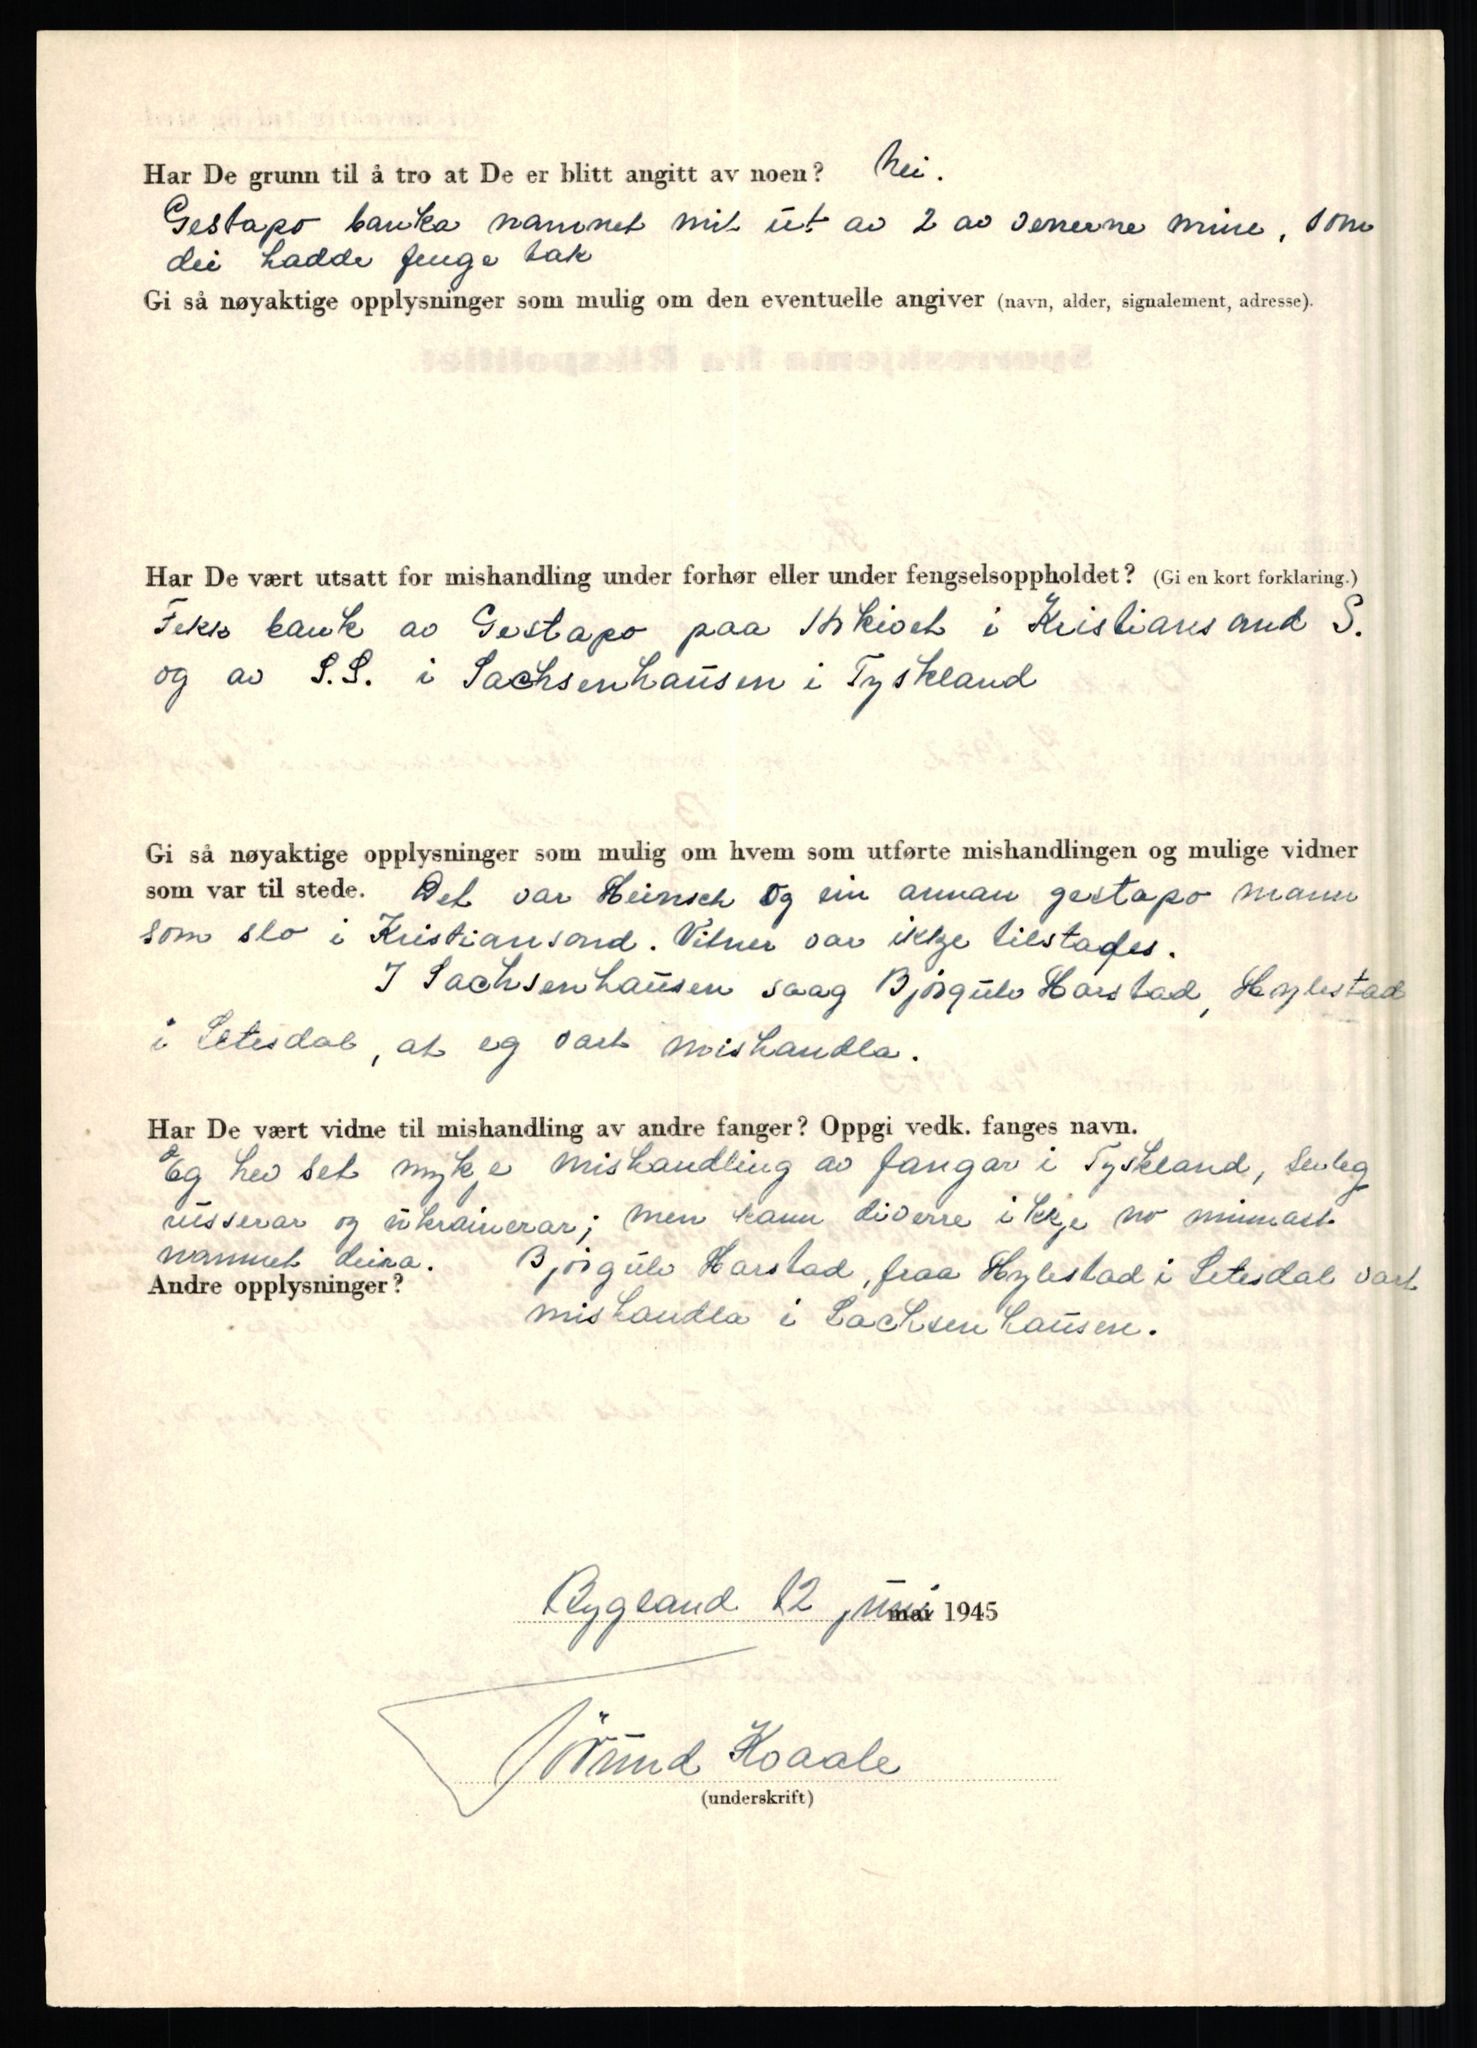 Har De grunn til å tro at De er blitt angitt av noen? Nei.
Gestapo banka namnet mit ut av 2 av venerne mine, som
dei hadde fenge tak
Gi så nøyaktige opplysninger som mulig om den eventuelle angiver (navn, alder, signalement, adresse).
Har De vært utsatt for mishandling under forhør eller under fengselsoppholdet? (Gi en kort forklaring.)
Fekk bank av Gestapo paa Arkivet i Kristiansand S.
og av S.S. i Sachsenhausen i Tyskland
Gi så nøyaktige opplysninger som mulig om hvem som utførte mishandlingen og mulige vidner
som var til stede. Det var Heinsch og ein annan gestapo mann
som slo i Kristiansand. Vitner var ikkje tilstades.
I Sachsenhausen saag Bjørgulv Harstad, Hylestad
i Setesdal, at eg vart mishandla.
Har De vært vidne til mishandling av andre fanger? Oppgi vedk. fanges navn.
Eg hev set mykje mishandling av fangar i Tyskland, serleg
russerar og ukrainerar; men kann diverre ikkje no minnast
namnet deira. Bjørgulv Harstad, fraa Hylestad i Setesdal vart
Andre opplysninger? mishandla i Sachsenhausen.
Bygland 12 juni mai 1945
Jörund Kvaale
(underskrift)